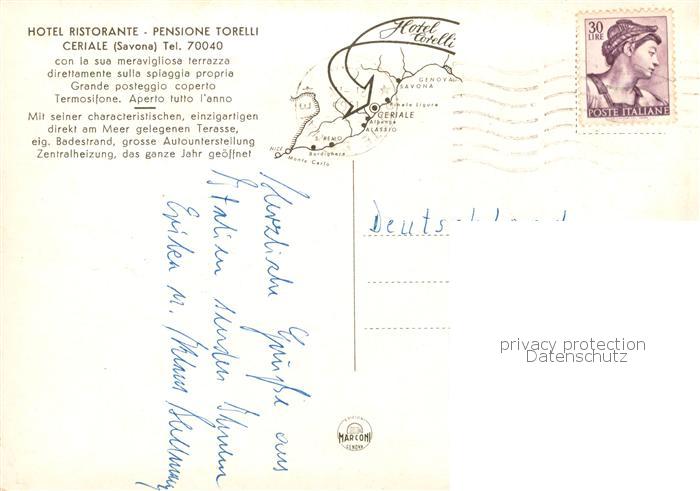 HOTEL RISTORANTE - PENSIONE TORELLI
CERIALE (Savona) Tel. 70040
con la sua meravigliosa terrazza
direttamente sulla spiaggia propria
Grande posteggio coperto
Termosifone. Aperto tutto l'anno
Mit seiner characteristischen, einzigartigen
direkt am Meer gelegenen Terasse,
eig. Badestrand, grosse Autounterstellung
Zentralheizung, das ganze Jahr geöffnet
Hotel
Torelli
GENOVA
SAVONA
Finale Ligure
CERIALE
Albenga
ALASSIO
S. REMO
Bordighera
NICE
Monte Carlo
30
LIRE
POSTE ITALIANE
Herzliche Grüße aus
Italien senden Ihnen
Erika u. Klaus
Deutschland
privacy protection
Datenschutz
EDIZIONI
MARCONI
GENOVA